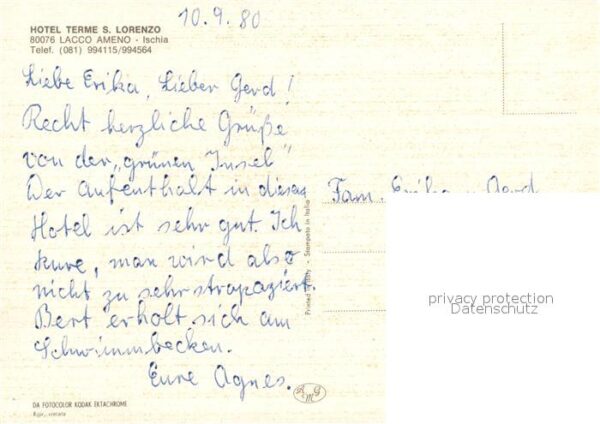 10.9.80
HOTEL TERME S. LORENZO
80076 LACCO AMENO - Ischia
Telef. (081) 994115/994564
Liebe Erika, Lieber Gerd!
Recht herzliche Grüße
von der „grünen Insel"
Der Aufenthalt in diesem
Hotel ist sehr gut. Ich
kure, man wird also
nicht zu sehr strapaziert.
Bert erholt sich am
Schwimmbecken.
Eure Agnes.
Fam. Erika u. Gerd
Printed in Italy - Stampato in Italia
privacy protection
Datenschutz
AGM
DA FOTOCOLOR KODAK EKTACHROME